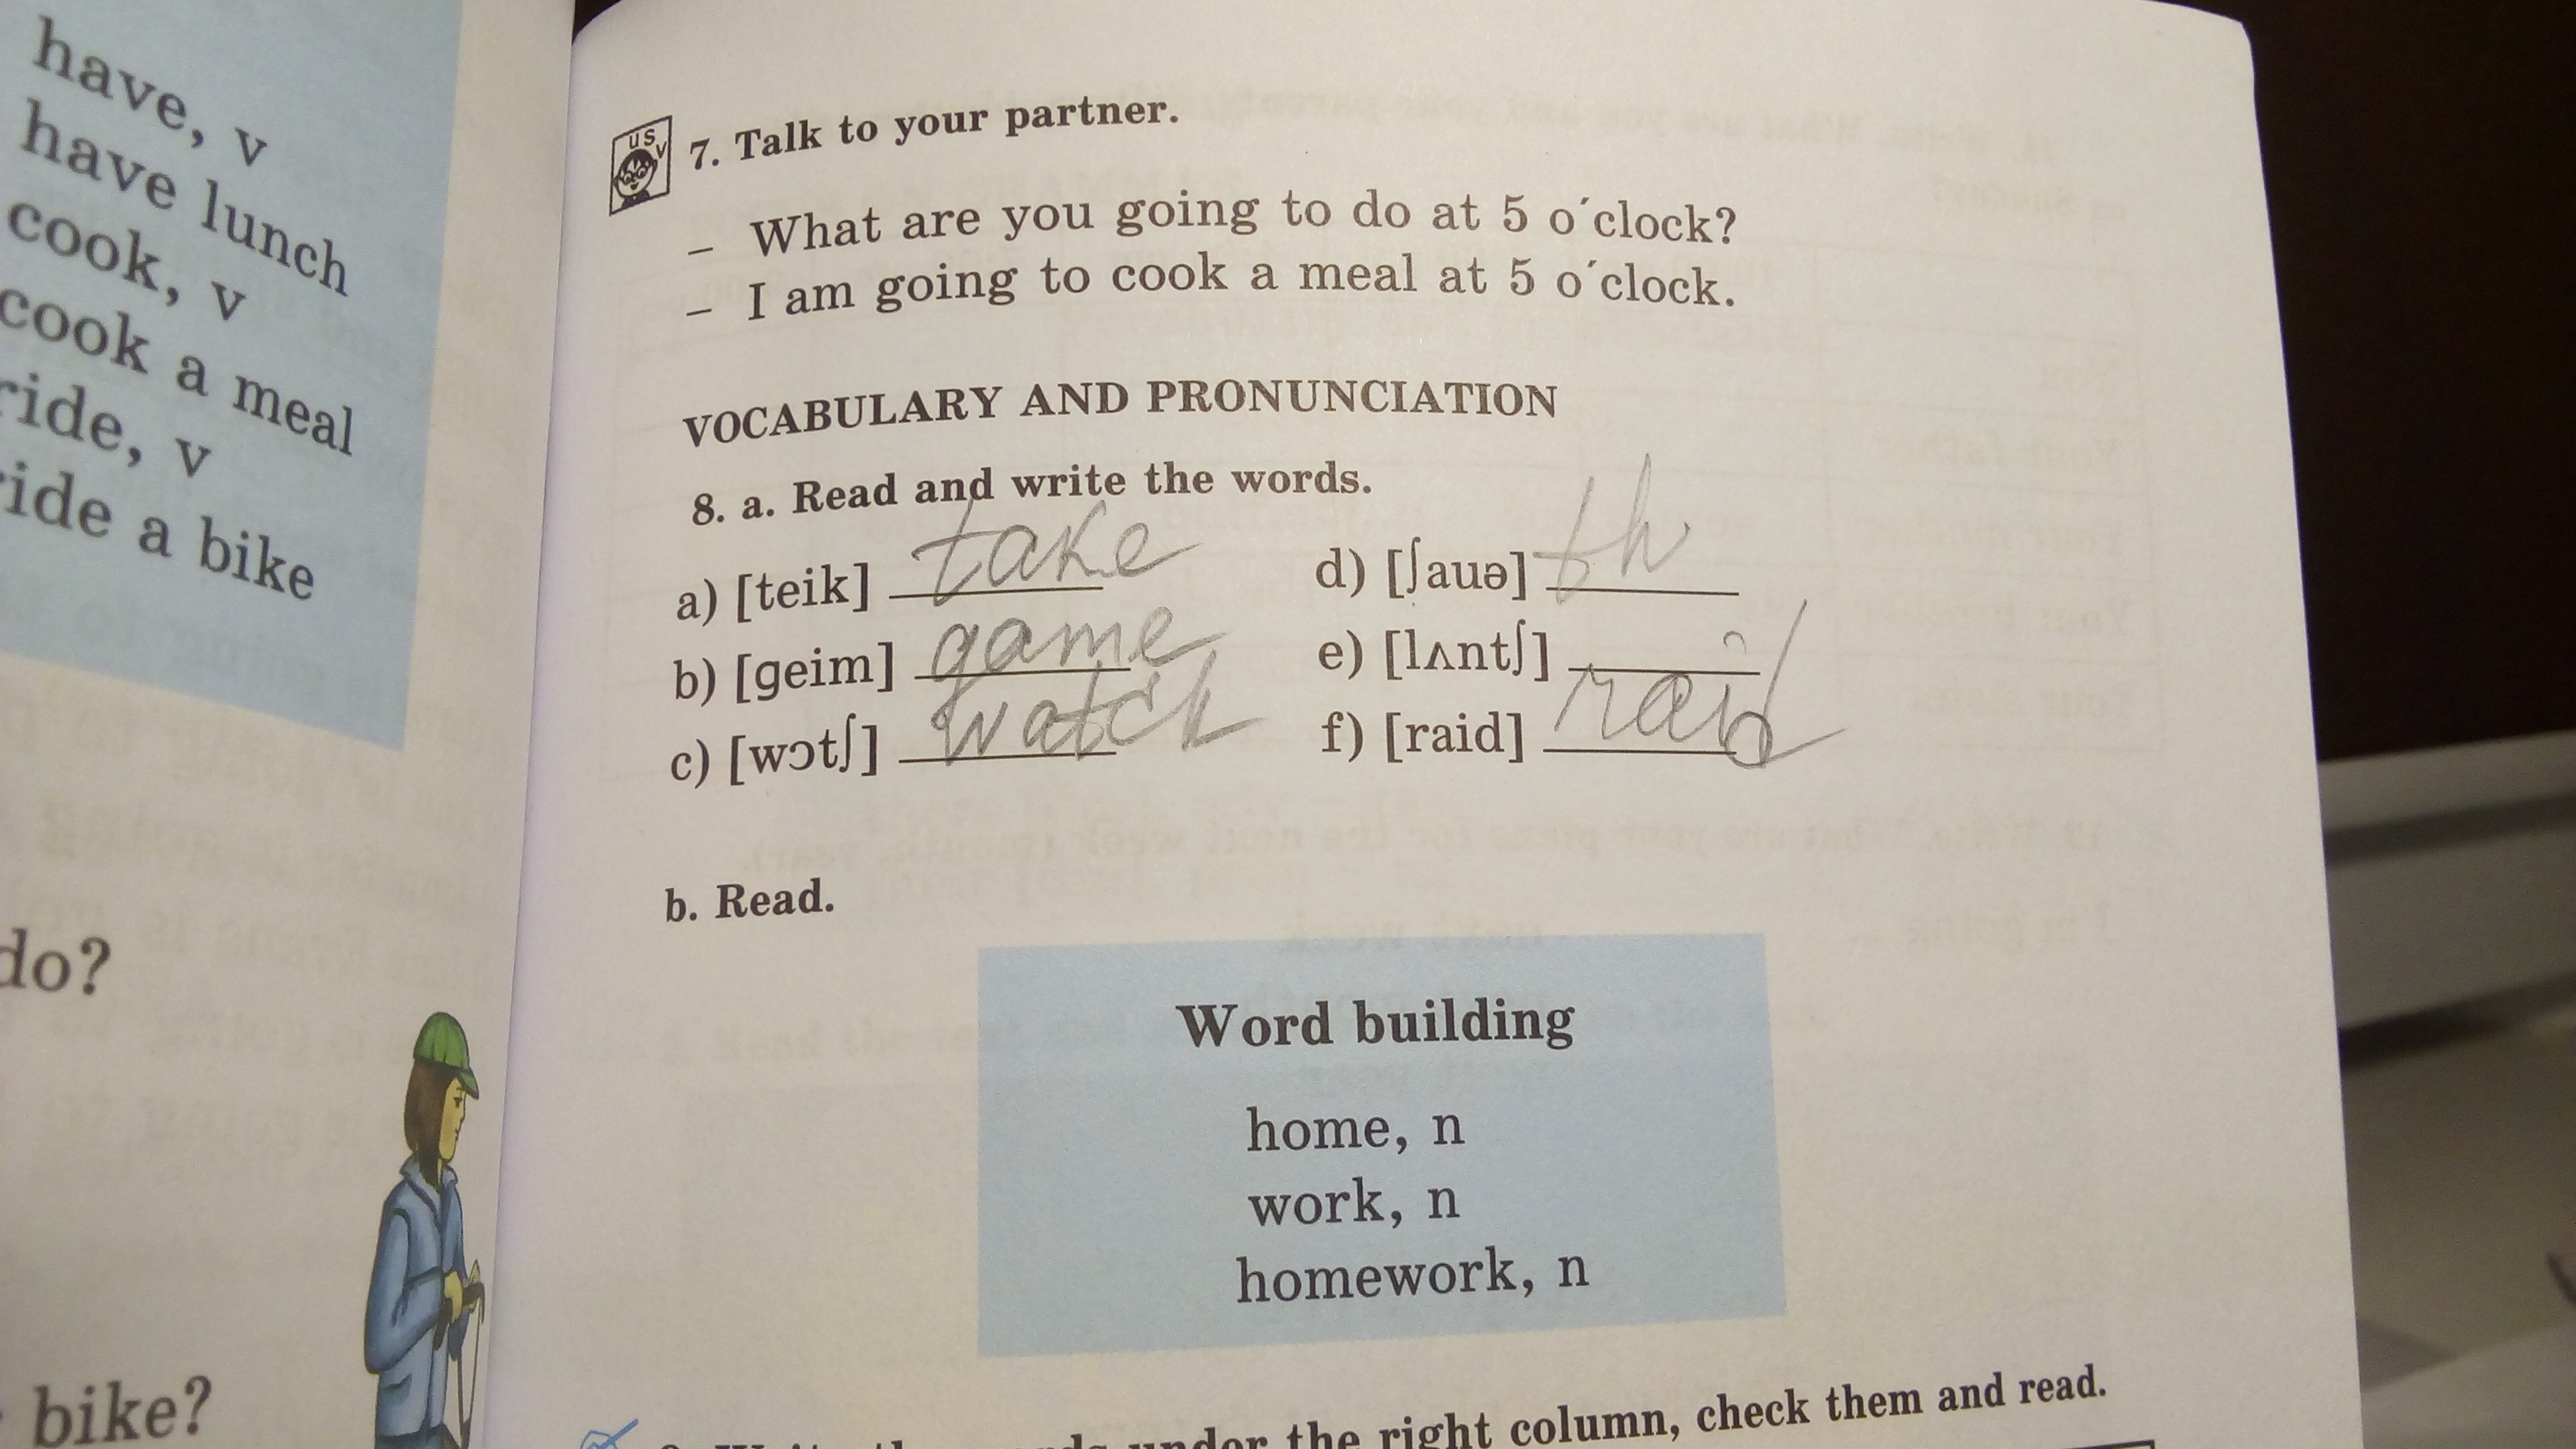 have, v
have lunch
cook, v
cook a meal
ride, v
ride a bike
do?
bike?
US
V
7. Talk to your partner.
– What are you going to do at 5 o´clock?
– I am going to cook a meal at 5 o´clock.
VOCABULARY AND PRONUNCIATION
8. a. Read and write the words.
a) [teik] take
b) [geim] game
c) [wɔtʃ] watch
d) [ʃauə] th
e) [lʌntʃ]
f) [raid] raid
b. Read.
Word building
home, n
work, n
homework, n
under the right column, check them and read.